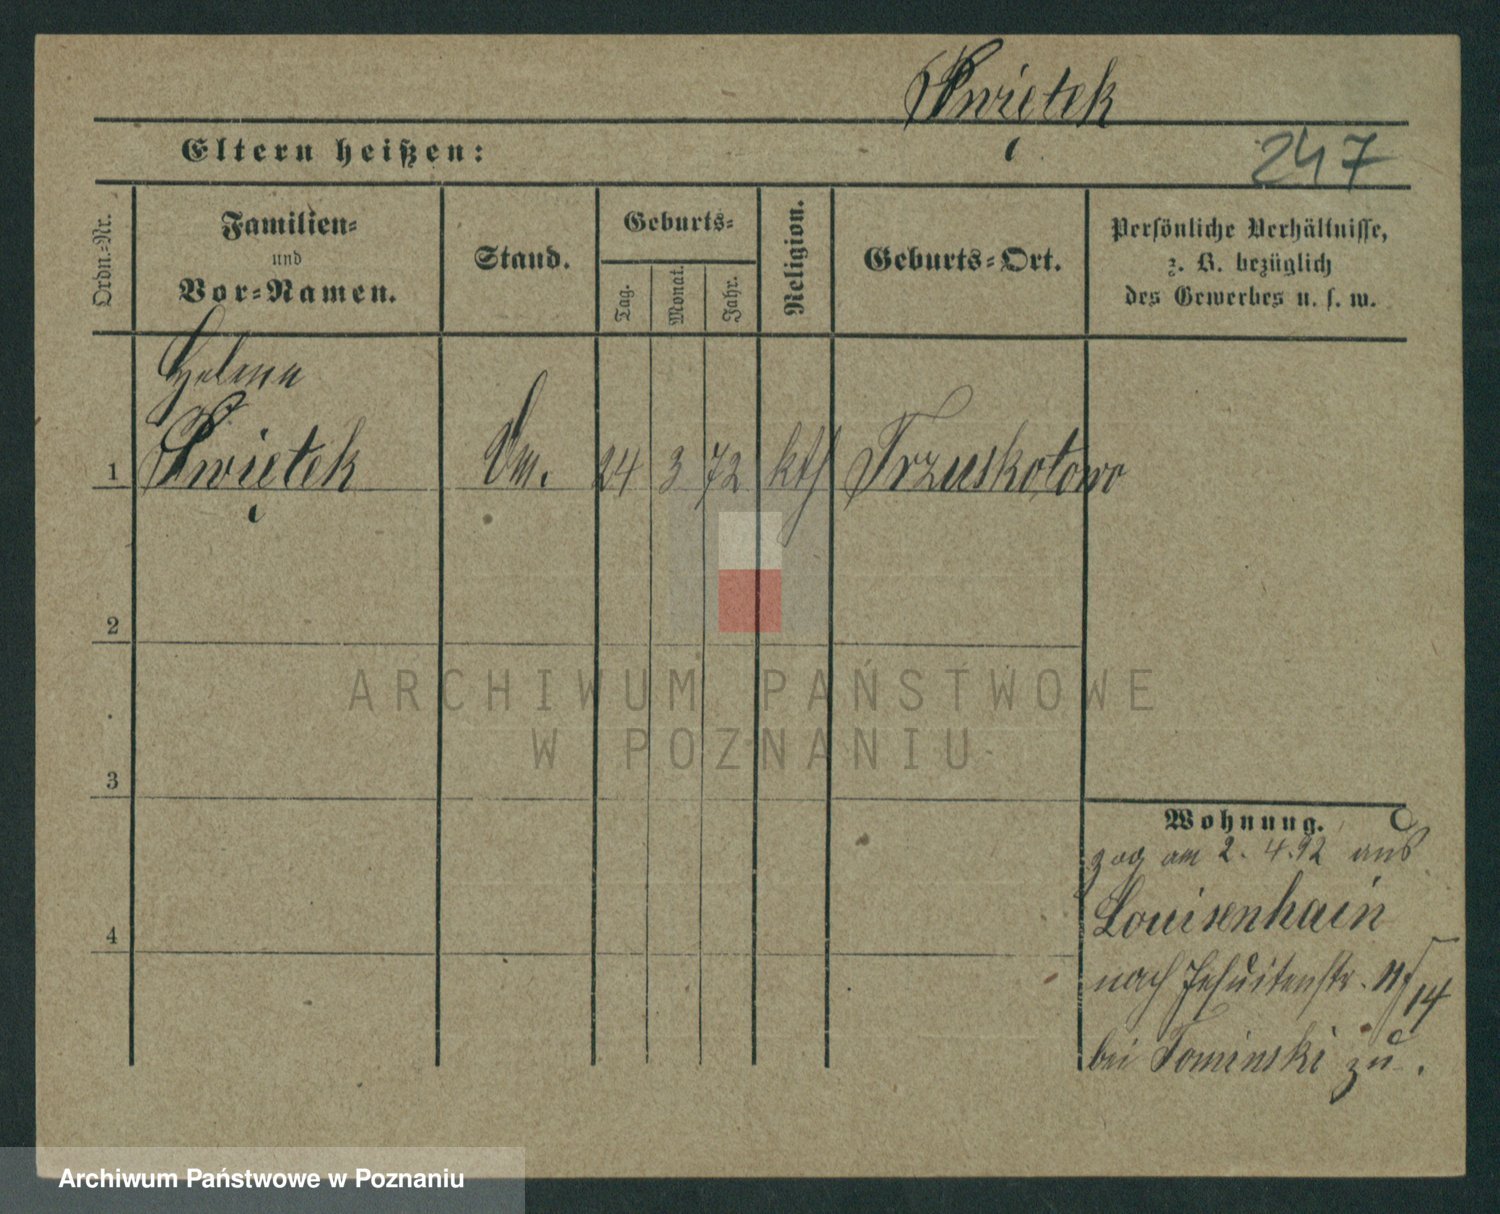 Swietek
Eltern heißen:
247
Ordn.-Nr.
Familien-
und
Vor-Namen.
Stand.
Geburts-
Tag.
Monat.
Jahr.
Religion.
Geburts-Ort.
Persönliche Verhältnisse,
z. B. bezüglich
des Gewerbes u. s. w.
Helene
1 Swietek 24 3 72 kth Trzuskotowo
2
3
4
ARCHIWUM PAŃSTWOWE
W POZNANIU
Wohnung.
zog am 2. 4. 92 aus
Louisenhain
nach Jesuitenstr. 14
bei Tominski zu.
Archiwum Państwowe w Poznaniu